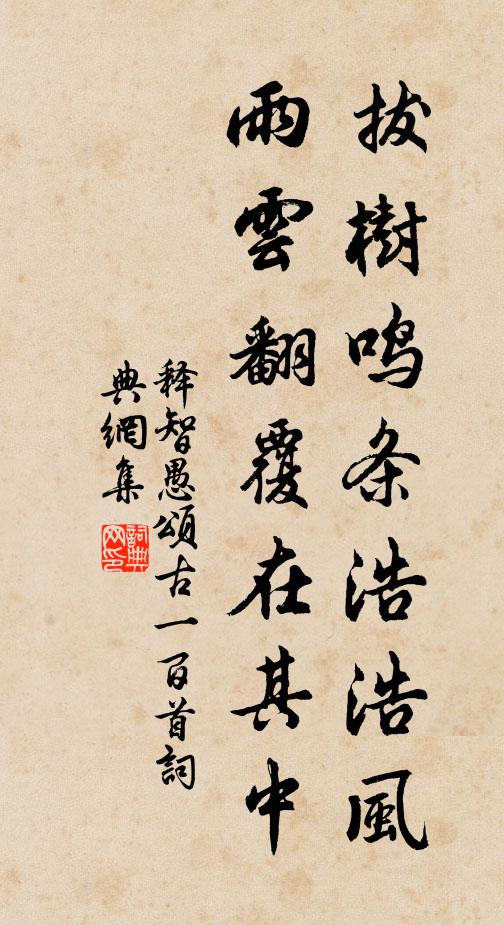 拔樹鸣条浩浩風
雨雲翻覆在其中
释智愚頌古一百首詞
典網集
詞典网印